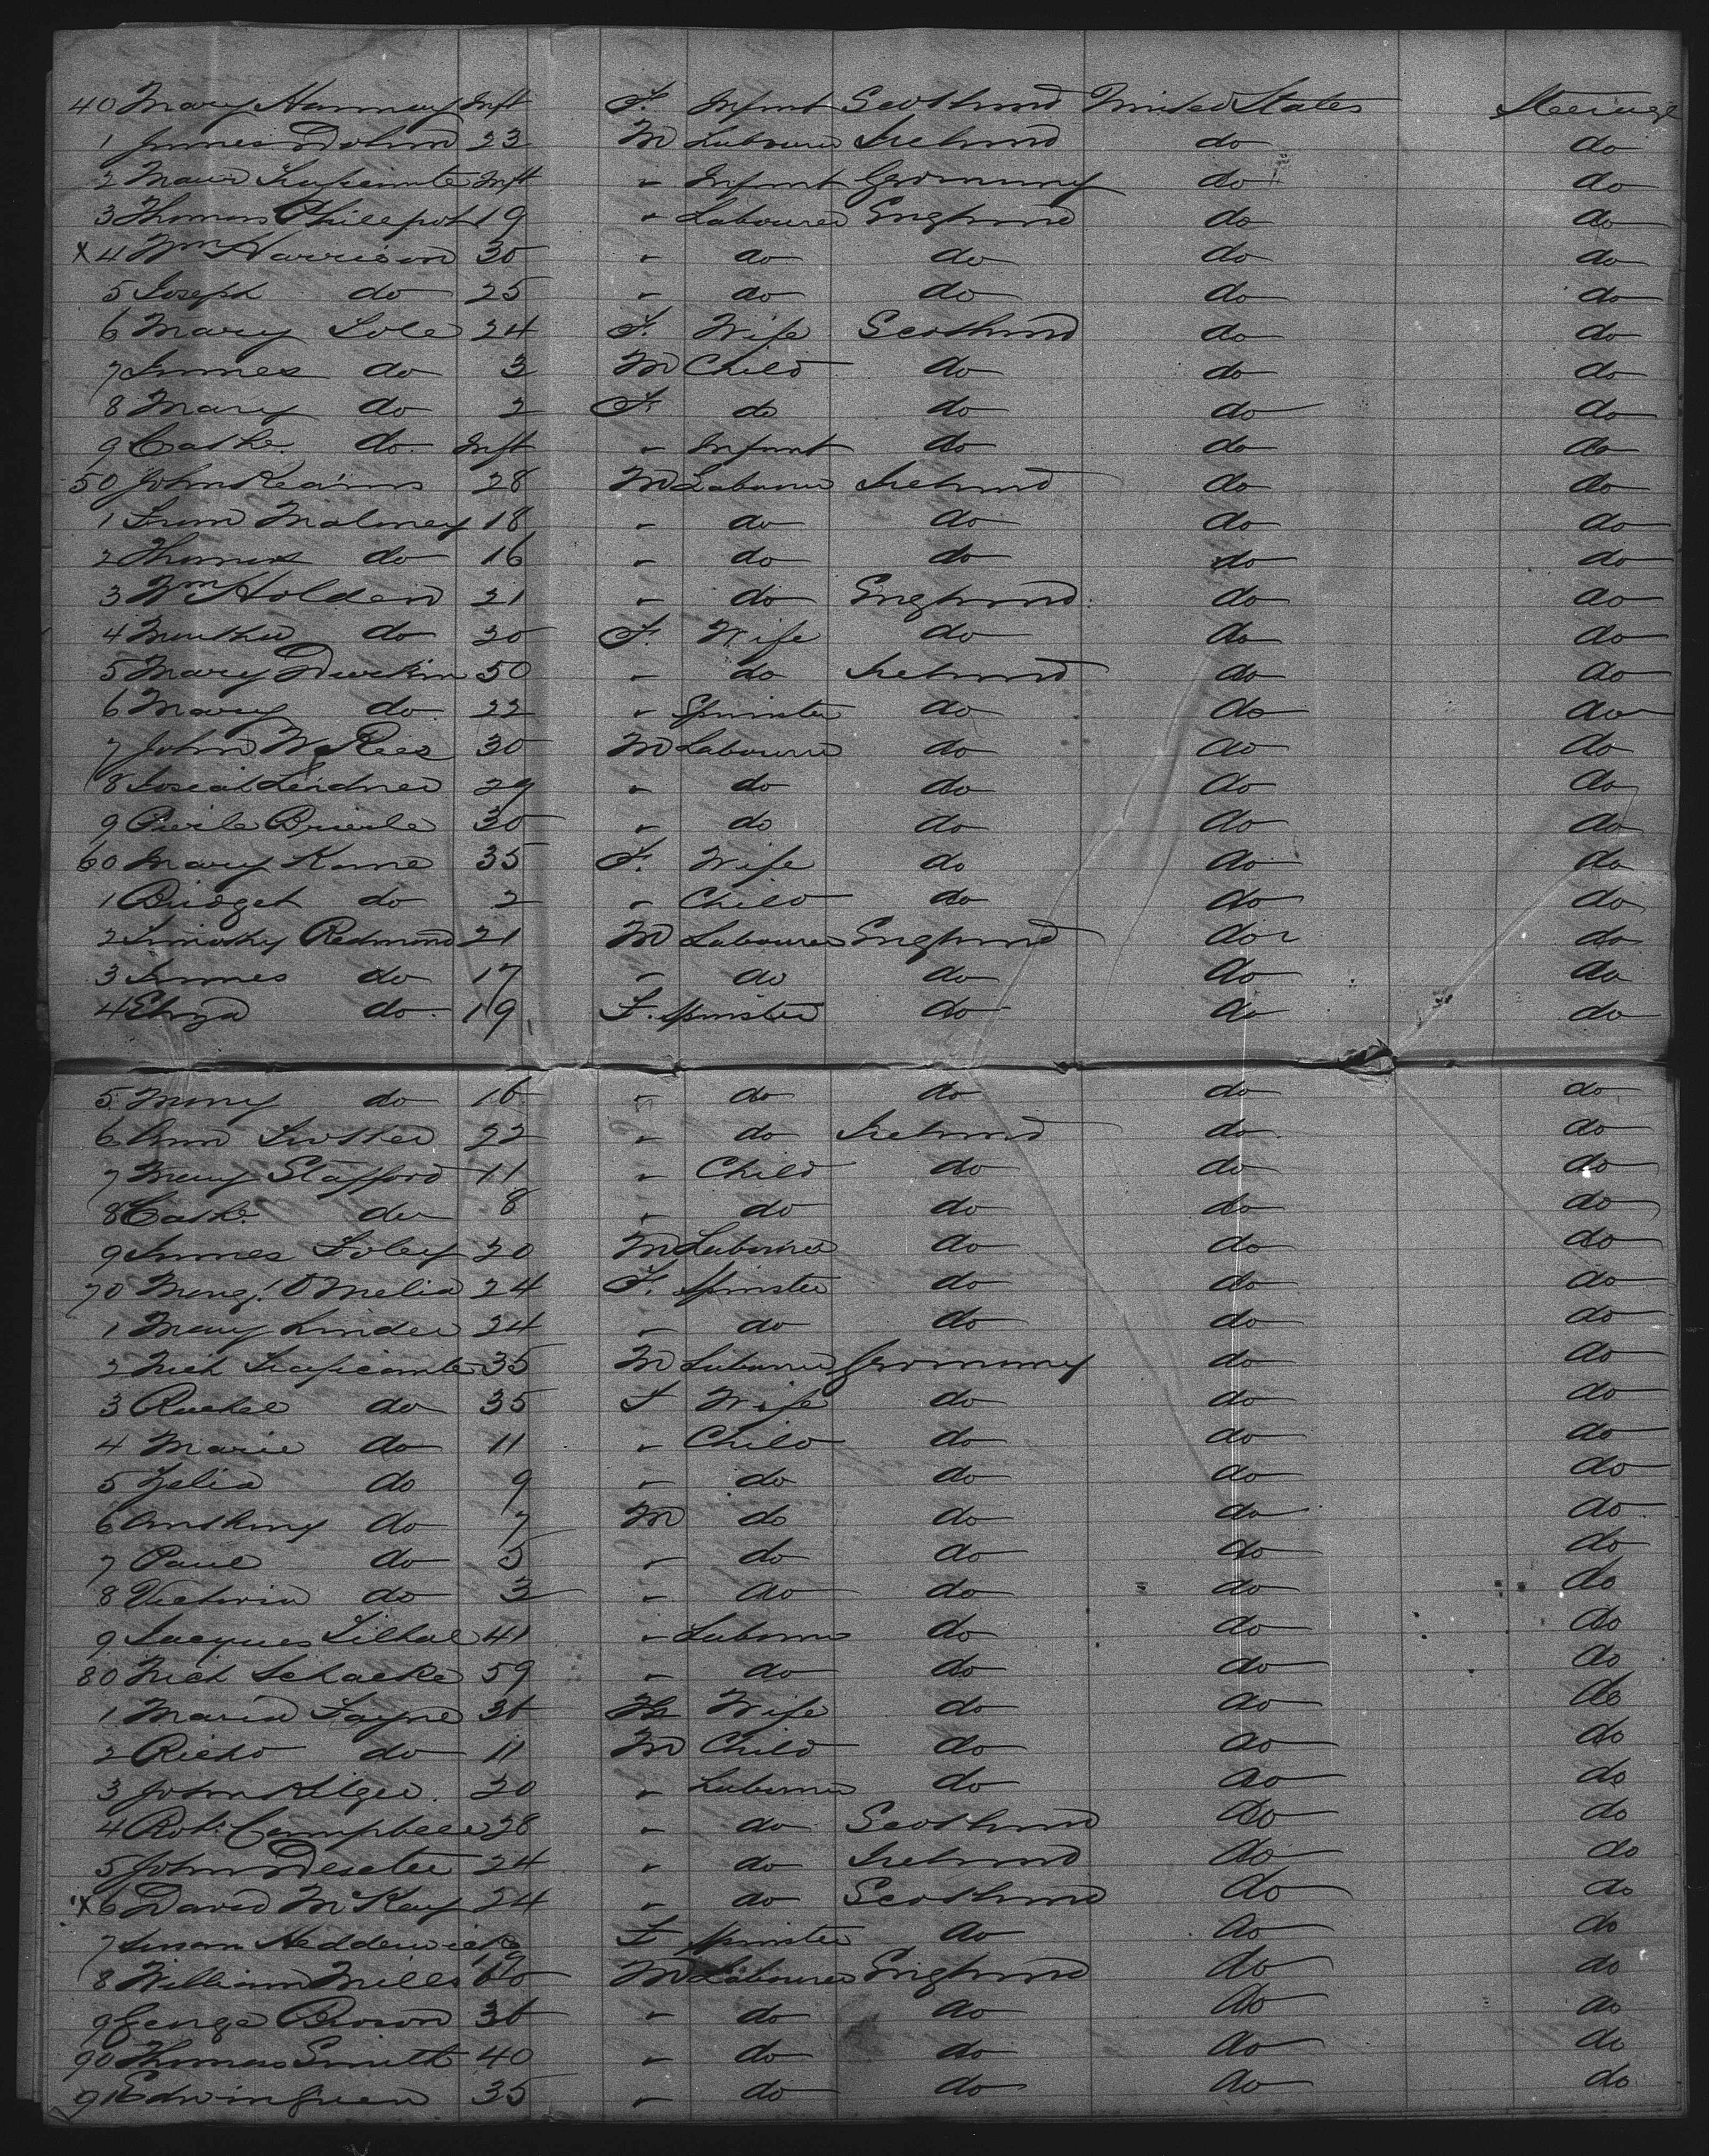 40 Mary Hannay Inft F. Infant Scotland United States Steerage
1 James Dolan 23 M Labourer Ireland do do
2 Inft " Infant Germany do do
3 Thomas Phillpot 19 " Labourer England do do
x 4 Wm Harrison 30 " do do do do
5 Joseph do 25 " do do do do
6 Mary Lole 24 F. Wife Scotland do do
7 James do 3 M Child do do do
8 Mary do 2 F. do do do do
9 Cathe. do. Inft " Infant do do do
50 John Kearns 28 M Labourer Ireland do do
1 Maloney 18 " do do do do
2 Thomas do 16 " do do do do
3 Wm Holden 21 " do England do do
4 Martha do 20 F. Wife do do do
5 Mary Durkin 50 " do Ireland do do
6 Mary do 22 " Spinster do do do
7 John 30 M Labourer do do do
8 Leidner 29 " do do do do
9 30 " do do do do
60 Mary Kane 35 F. Wife do do do
1 Bridget do 2 " Child do do do
2 Timothy Redmond 21 M Labourer England do do
3 James do 17 " do do do do
4 Eliza do 19 F. Spinster do do do
5 Mary do 16 " do do do do
6 Ann Trotter 22 " do Ireland do do
7 Mary Stafford 11 " Child do do do
8 Cathe. do 8 " do do do do
9 James Foley 20 M Labourer do do do
70 Marg. O Melia 24 F. Spinster do do do
1 Mary Linder 24 " do do do do
2 Nich 35 M Labourer Germany do do
3 Rachel do 35 F Wife do do do
4 Marie do 11 " Child do do do
5 Zelia do 9 " do do do do
6 Anthony do 7 M do do do do
7 Paul do 5 " do do do do
8 Victoria do 3 " do do do do
9 Jacques 41 " Labourer do do do
80 Nich Schacke 59 " do do do do
1 Maria Fayne 30 F Wife do do do
2 Richd do 11 M Child do do do
3 John Kilger. 20 " Labourer do do do
4 Robt. Campbell 28 " do Scotland do do
5 John 24 " do Ireland do do
x 6 David McKay 24 " do Scotland do do
7 Susan Hedderwick 19 F Spinster do do do
8 William Mills M Labourer England do do
9 George Brown 30 " do do do do
90 Thomas Smith 40 " do do do do
91 Edwin Green 35 " do do do do